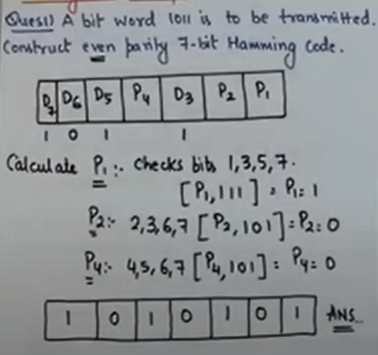 Ques1) A bit word 1011 is to be transmitted.
Construct even parity 7-bit Hamming code.
D7 D6 D5 P4 D3 P2 P1
1 0 1 1
Calculate P1:- Checks bits 1,3,5,7.
[P1, 111] = P1=1
P2:- 2,3,6,7 [P2, 101] = P2=0
P4:- 4,5,6,7 [P4, 101] = P4=0
1 0 1 0 1 0 1 ANS..